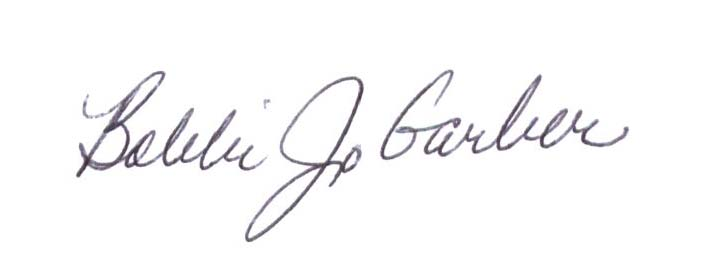 Bobbi Jo Garber